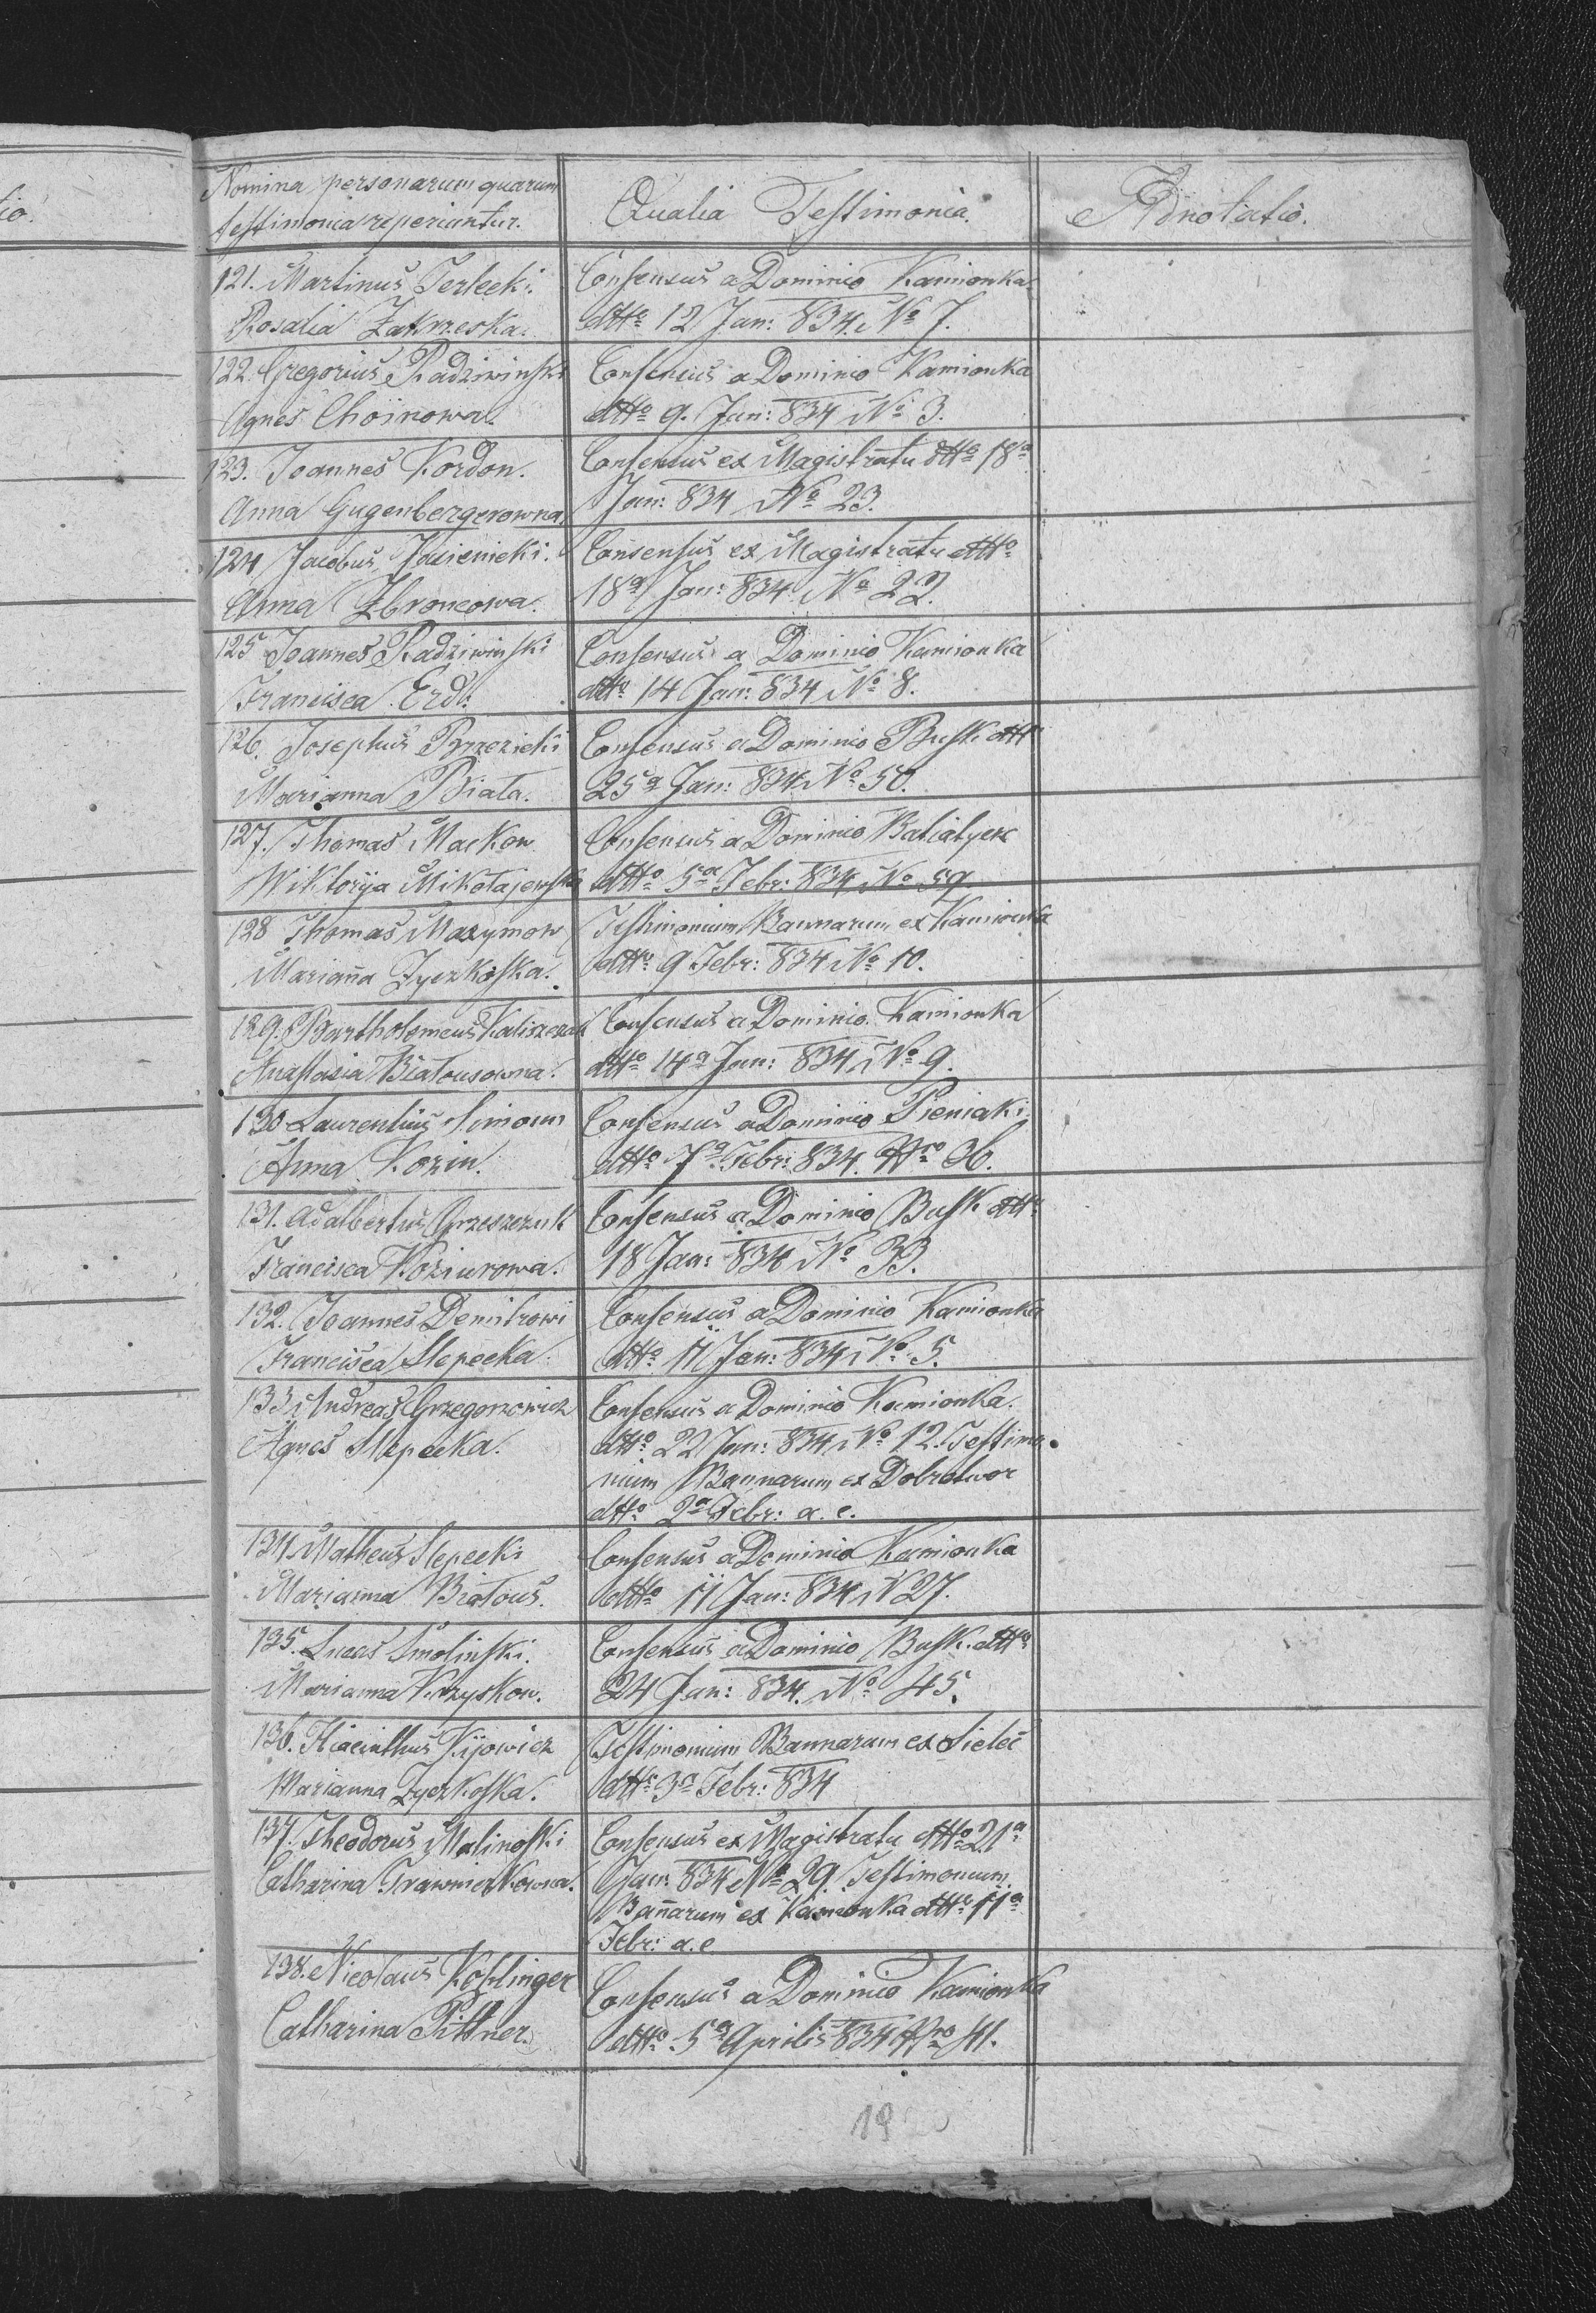 Nomina personarum quarum
testimonia reperiuntur.
Qualia Testimonia.
Adnotatio.
121. Martinus Terlecki.
Rosalia Zakrzeska.
Consensus a Dominio Kamionka
dtto 12 Jan: 834. No 7.
122. Gregorius Radziwinski
Agnes Choinowa.
Consensus a Dominio Kamionka
dtto 9. Jan: 834 No 3.
123. Joannes Kordon.
Anna Gugenbergerowna
Consensus ex Magistratu dtto 18a
Jan: 834 No 23.
124 Jacobus Jasienicki.
Anna Zbroncowa.
Consensus ex Magistratu dtto
18a Jan: 834. No 22.
125 Joannes Radziwinski
Francisca Erd.
Consensus a Dominio Kamionka
dtto 14 Jan: 834 No 8.
126. Josephus Brzezicki
Marianna Biała.
Consensus a Dominio Busk dtto
25a Jan: 834 No 50.
127. Thomas Mackow
Wiktorya Mikołajewska
Consensus a Dominio Batiatyczc
dtto 5a Febr: 834 No 59.
128 Thomas Maxymow
Marianna Zyczkoska.
Testimonium Bannarum ex Kamionka
dtto 9 Febr: 834 No 10.
129. Bartholomeus Kaliszczak
Anastasia Białousowna.
Consensus a Dominio Kamionka
dtto 14a Jan: 834 No 9.
130 Laurentius Simon
Anna Kozin.
Consensus a Dominio Pieniaki
dtto 7a Febr: 834. Nro 36.
131. Adalbertus Grzeszczuk
Francisca Koziurowa.
Consensus a Dominio Busk dtto
18 Jan: 834 No 33.
132. Joannes Demitrowi
Francisca Slepecka.
Consensus a Dominio Kamionka
dtto 11 Jan: 834 No 5.
133. Andreas Grzegorzowicz
Agnes Slepecka.
Consensus a Dominio Kamionka.
dtto 22 Jan: 834 No 12. Testimo
nium Bannarum ex Dobrotwor
dtto 2a Febr: a. c.
134 Matheus Slepecki
Marianna Białous.
Consensus a Dominio Kamionka
dtto 11 Jan: 834 N 27.
135. Lucas Smolinski.
Marianna Krzyskow.
Consensus a Dominio Busk. dtto
24 Jan: 834. No 45.
136. Hiacinthus Kijowicz
Marianna Zyczkoska.
Testimonium Bannarum ex Sielec
dtto 3a Febr: 834
137. Theodorus Malinoski
Catharina Trawniczkowna.
Consensus ex Magistratu dtto 21a
Jan: 834 No 29 Testimonium
Bannarum ex Kamionka dtto 11a
Febr: a. c
138. Nicolaus Koslinger
Catharina Pittner.
Consensus a Dominio Kamionka
dtto 5a Aprilis 834 Nro 41.
19